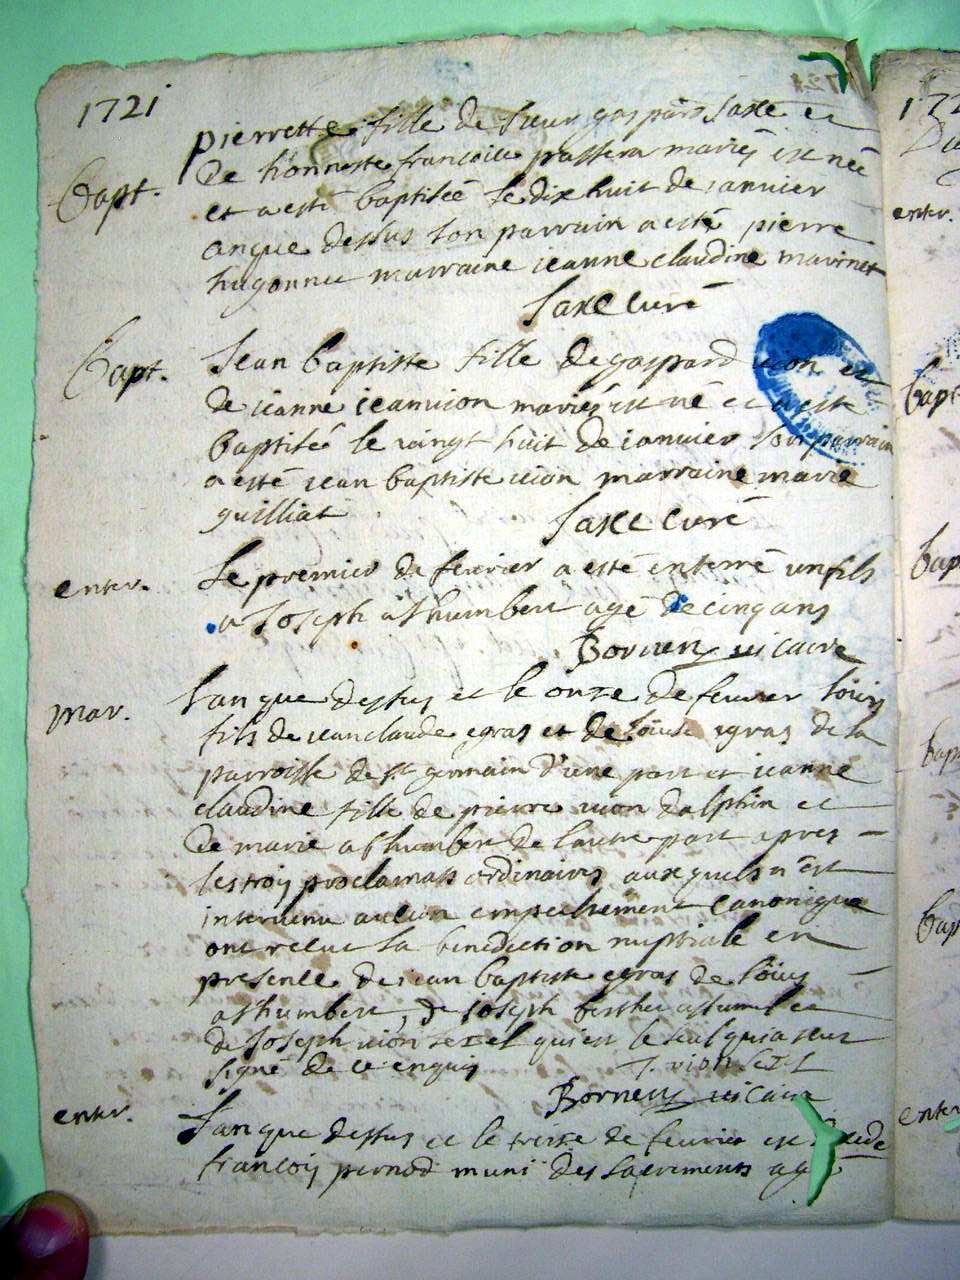 1721
pierrette fille de sieur gaspard saxe et
Bapt. de honneste françoise passera mariés est née
et a esté baptiseé le dix huit de ianuier
an que dessus son parrain a esté pierre
hugonnet marraine ieanne claudine marinet
Saxe Curé
Bapt. Jean baptiste fille de gaspard uion et
de ieanne ieanuion mariés est né et a esté
baptisé le uingt huit de ianuier son parrain
a esté iean baptiste uion marraine marie
guilliat
Saxe curé
enter. Le premier de feurier a esté enterré un fils
a Joseph abhumbert agé de cinq ans
Borney uicaire
mar. Lan que dessus et le onze de feurier Loüis
fils de iean claude gras et de Loüise gras de la
parroisse de st germain d'une part et ieanne
claudine fille de pierre uion dalphin et
de marie abhumbert de lautre part apres
les trois proclamats ordinaires auxquels n'est
interuenu aucun empeschement Canonique
ont receut la benediction nuptiale en
presence de iean baptiste gras de Loüis
abhumbert, de Joseph berthet et
de Joseph uion sexel qui est le seul qui a seut
signé de ce enquis
J. vion sexel
Borney uicaire
enter. Lan que dessus et le treize de feurier est decede
françois pernod muni des sacrements agé